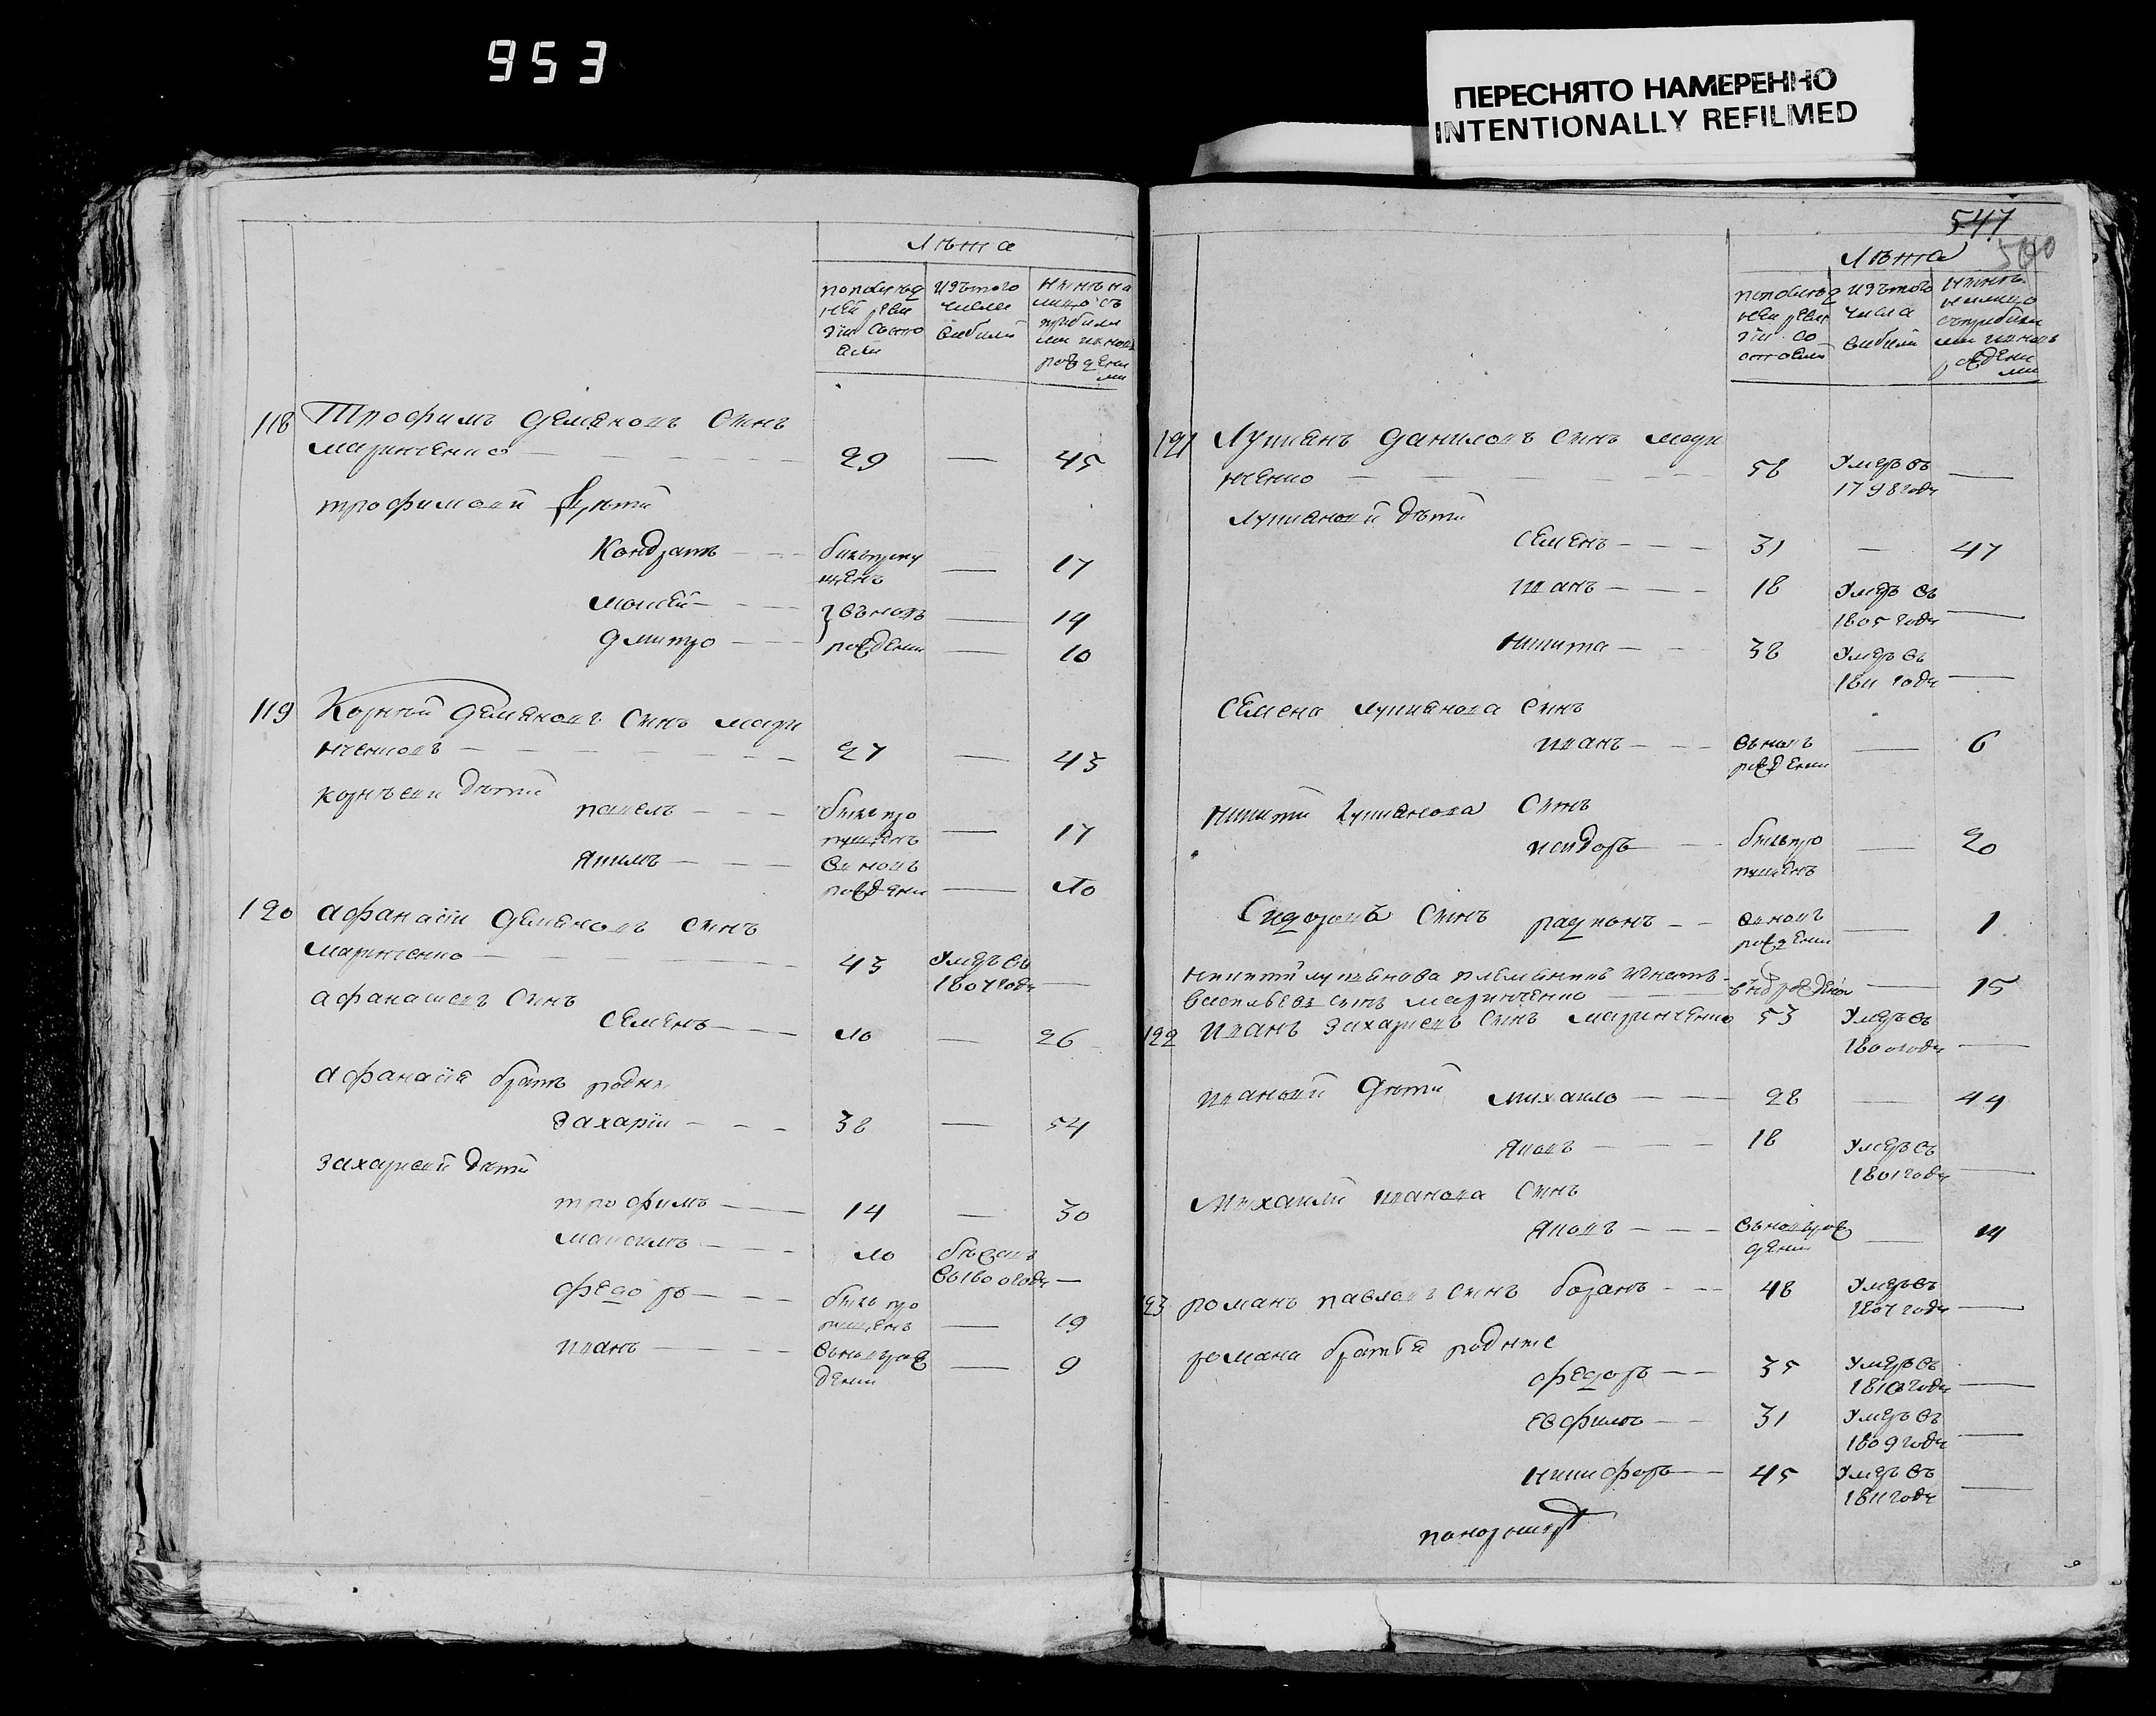 953
ПЕРЕСНЯТО НАМЕРЕННО
INTENTIONALLY REFILMED
Лѣта
изъ того числа выбыло
118 Трофимъ Демяновъ сынъ
маринченко 29 — 45
трофимовы дѣти
Кондратъ былъ пропущенъ — 17
моисей въ новъ — 14
дмитро рождени — 10
119 Корнѣй Демяновъ сынъ мари
нченковъ 27 — 43
корнѣевы дѣти
павелъ былъ пропущенъ — 17
Якимъ въ новъ рождени — 10
120 афанасіи Демяновъ сынъ
маринченко 43 умеръ въ 1807 годе —
афанасиевъ сынъ
Семенъ 10 — 26
афанасія братъ родны
Захаріи 38 — 54
Захариевы дѣти
трофимъ 14 — 30
максимъ 10 бѣжалъ въ 1800 годе —
федоръ былъ пропущенъ — 19
иванъ въ новъ рождени — 9
547
540
Лѣта
изъ того числа выбыло
121 Лукианъ Даниловъ сынъ мари
нченко 58 умеръ въ 1798 годе —
лукиановы дѣти
Семенъ 31 — 47
иванъ 18 умеръ въ 1805 годе —
никита 38 умеръ въ 1811 годе —
Семена лукианова сынъ
иванъ въ новъ рождени — 6
никиты лукианова сынъ
исидоръ былъ пропущенъ — 20
Сидоровъ сынъ радионъ въ новъ рождени — 1
никиты лукианова племянникъ игнатъ
васильевъ сынъ маринченко — 15
122 иванъ захариевъ сынъ маринченко 53 умеръ въ 1800 годе —
ивановы дѣти михаило 28 — 44
Яковъ 18 умеръ въ 1801 годе —
михаилы иванова сынъ
Яковъ въ новъ рождени — 14
123 романъ павловъ сынъ борань 48 умеръ въ 1807 годе —
романа братья родные
федоръ 35 умеръ въ 1810 годе —
евфимъ 31 умеръ въ 1809 годе —
никифоръ 45 умеръ въ 1811 годе —